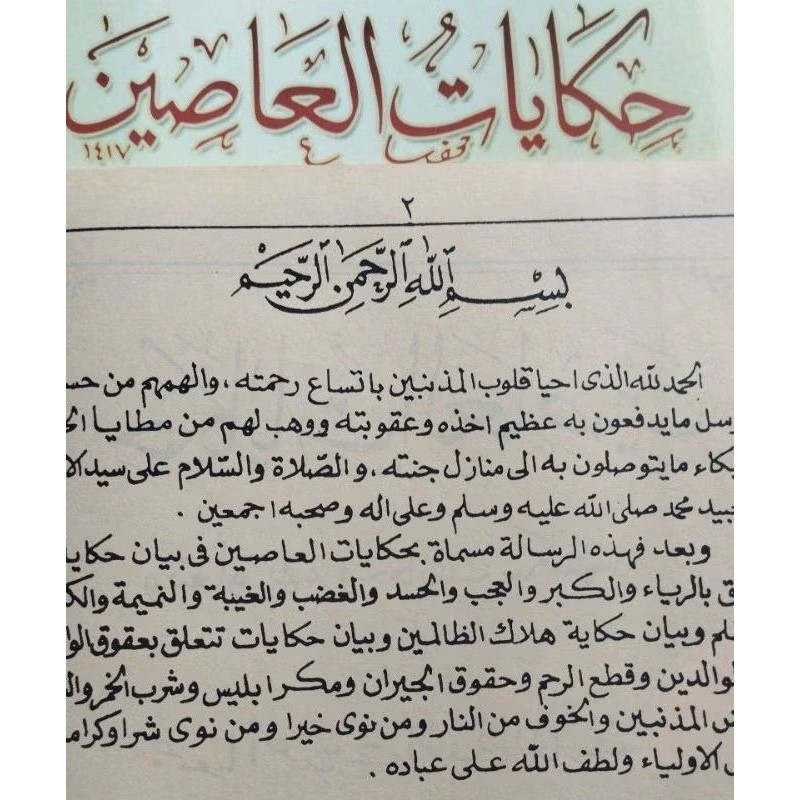 حكايات العاصين
١٤١٧
٢
بسم الله الرحمن الرحيم
الحمد لله الذى احيا قلوب المذنبين باتساع رحمته ، والهمهم من حسـ
رسل ما يدفعون به عظيم اخذه وعقوبته ووهب لهم من مطايا الـ
بكاء ما يتوصلون به الى منازل جنته ، والصّلاة والسّلام على سيد الا
محمد صلى الله عليه وسلم وعلى اله وصحبه اجمعين .
وبعد فهذه الرسالة مسماة بحكايات العاصين فى بيان حكايا
ق بالرياء والكبر والعجب والحسد والغضب والغيبة والنميمة والكـ
لم وبيان حكاية هلاك الظالمين وبيان حكايات تتعلق بعقوق الوا
لوالدين وقطع الرحم وحقوق الجيران ومكر ابليس وشرب الخمر والـ
المذنبين والخوف من النار ومن نوى خيرا ومن نوى شرا وكراما
الاولياء ولطف الله على عباده .